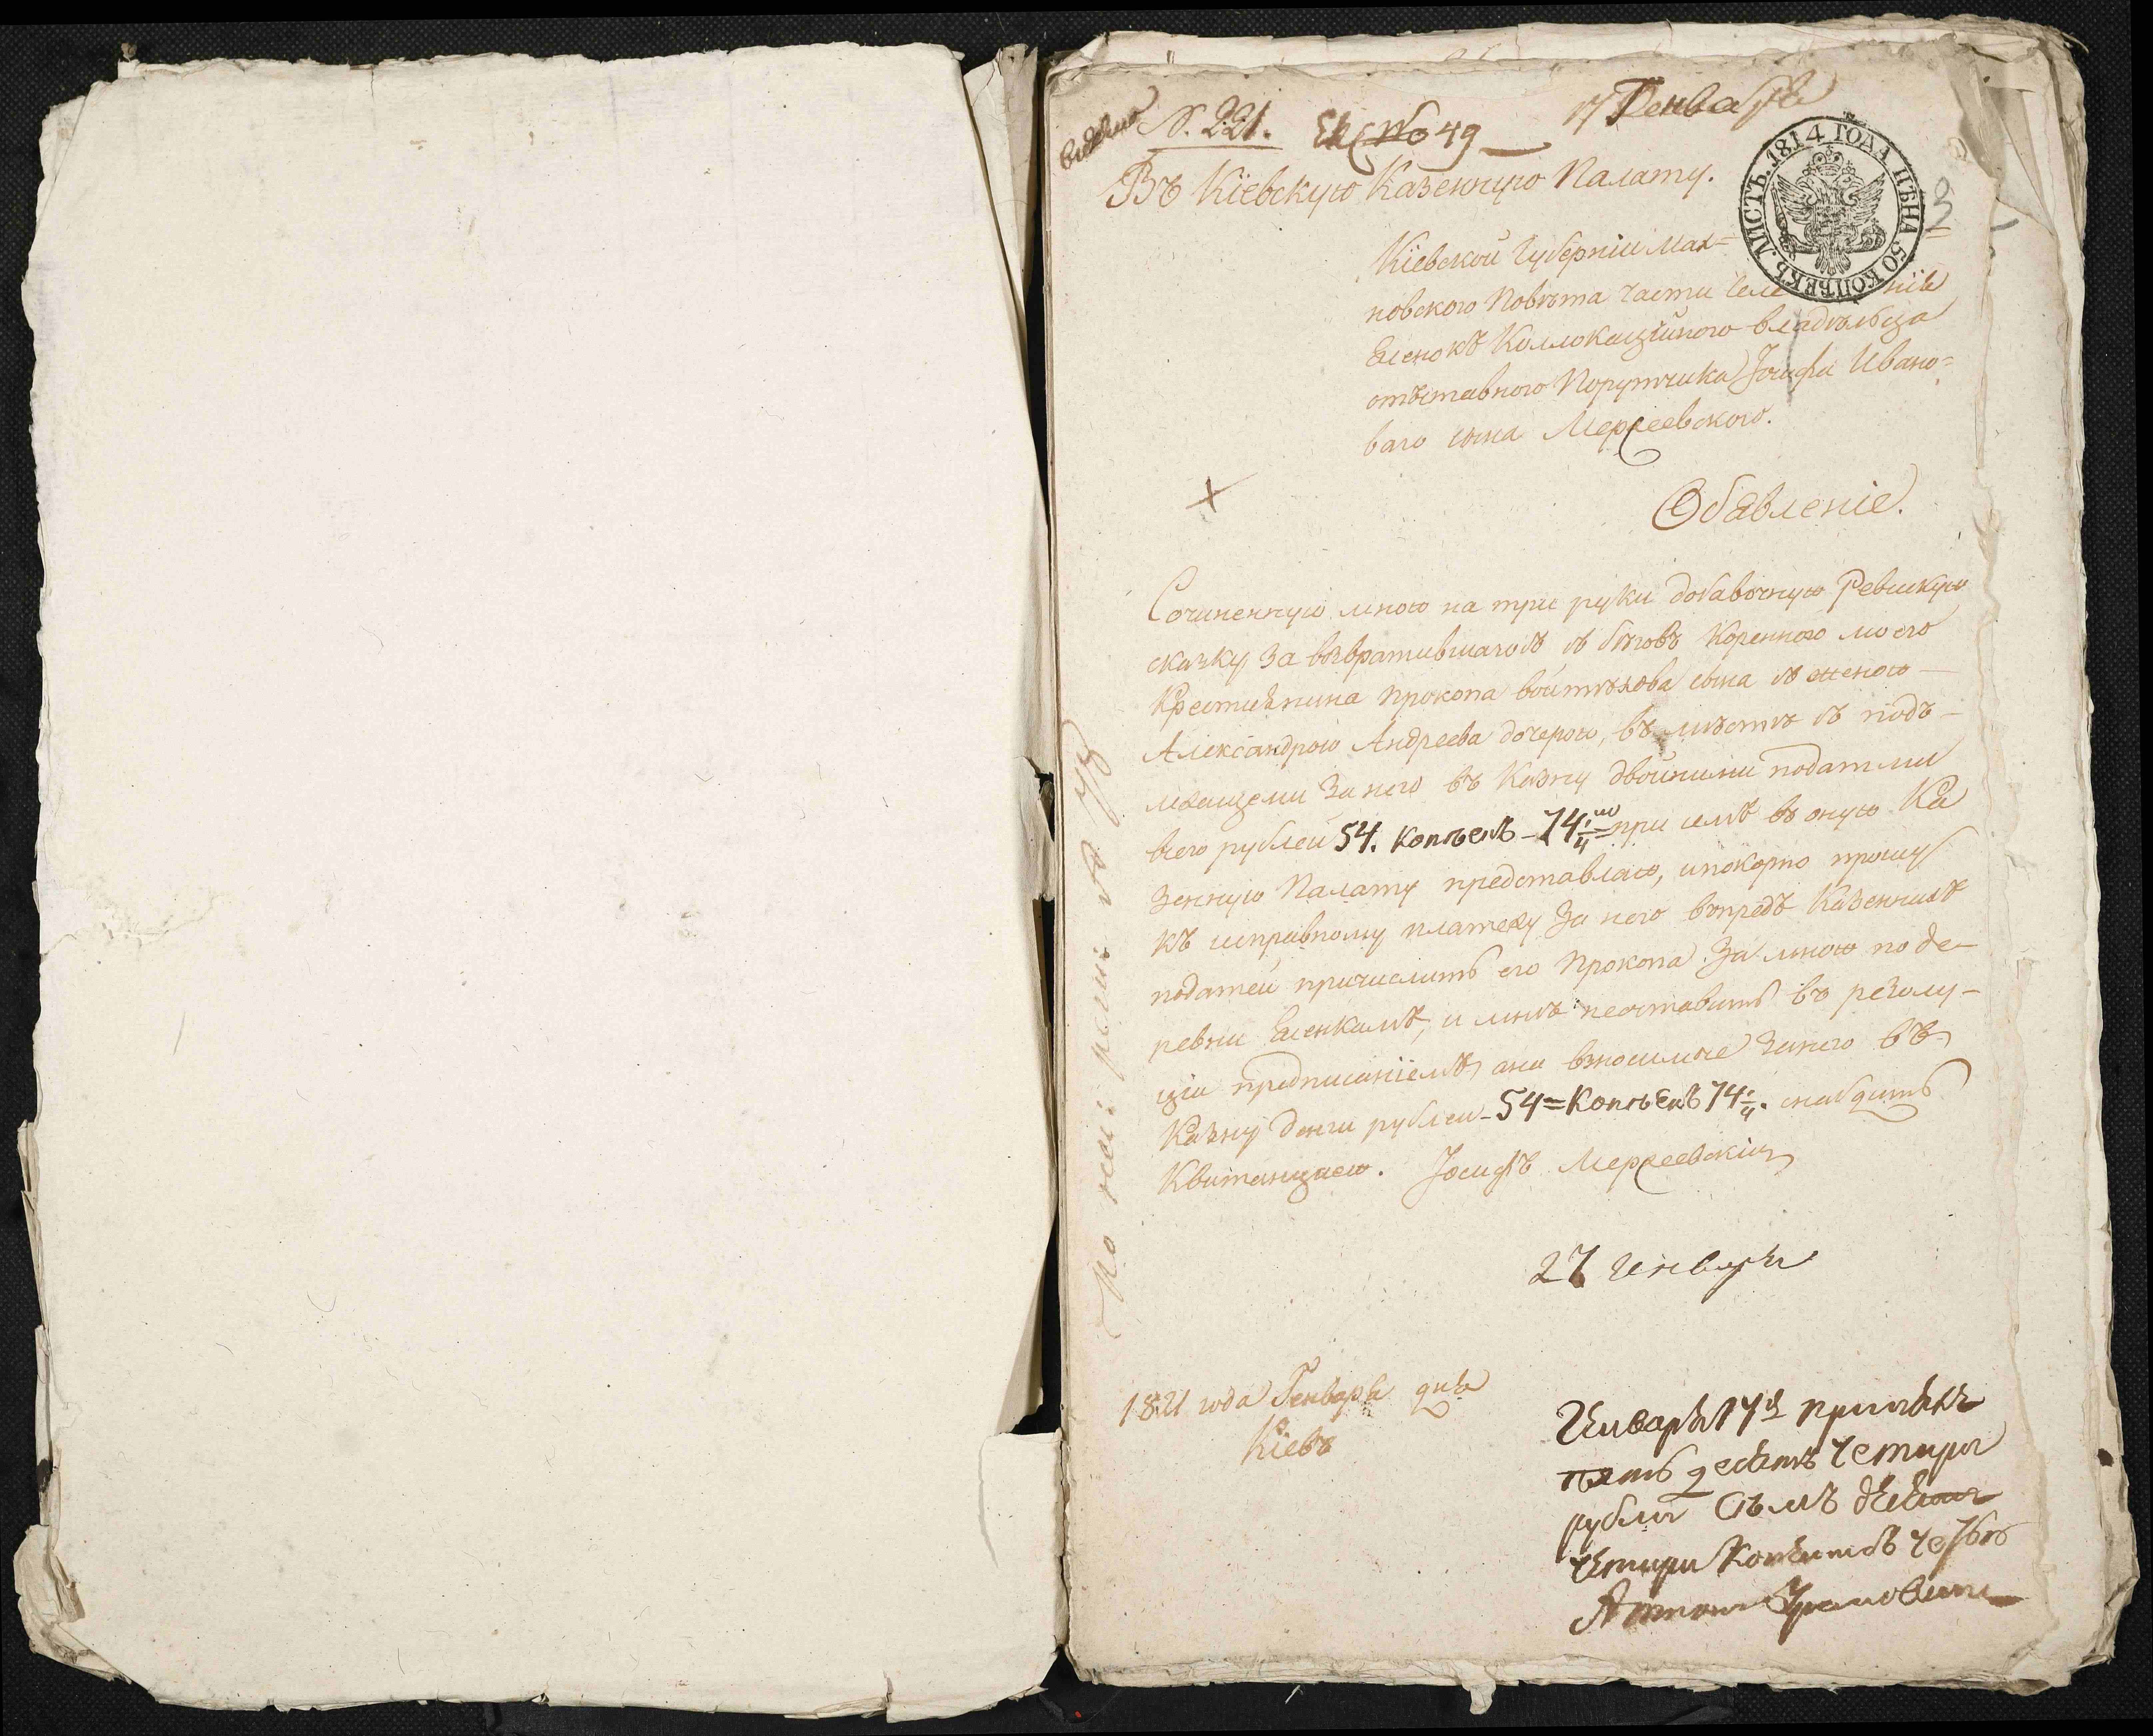 N. 221. № 49 17 Генваря
Въ Кіевскую Казенную Палату.
ЛИСТЪ. 1814 ГОДА ЦѢНА 50 КОПѢЕКЪ.
3
Кіевской Губерніи Мах=
новского Повѣта части
Еленокъ Коллокацыйного владѣльца
отъставного Порутчика Іосифа Ивано=
ваго сына Мержеевского.
Обявленіе.
Сочиненную мною на три руки добавочную Ревискую
сказку за возвратившагось съ бѣговъ Коренного моего
Крестиянина Прокопа войтѣхова сына съ женою
Александрою Андреева дочерою, въ мѣстѣ съ подъ-
лежащеми за него въ Казну двойными податми
всего рублей 54. копѣекъ 74 1/4 при семъ въ оную Ка
зенную Палату представляю, и покорно прошу
къ исправному платежу за него впредъ Казенныхъ
податей причислить его Прокопа за мною по де-
ревни Еленкамъ, и мнѣ неоставить въ резолу-
ціи предписаніемъ, а на вносимые за него въ
Казну денги рублей 54= Копѣекъ 74 1/4. снабдить
Квитанцыею. Іосифъ Мержеевскій
27 генваря
1821 года Генваря дня
Кіевъ
Генваря 17 принялъ
пять десятъ четыри
рубли семъ десятъ
четыри копейки съ четв
Антонъ